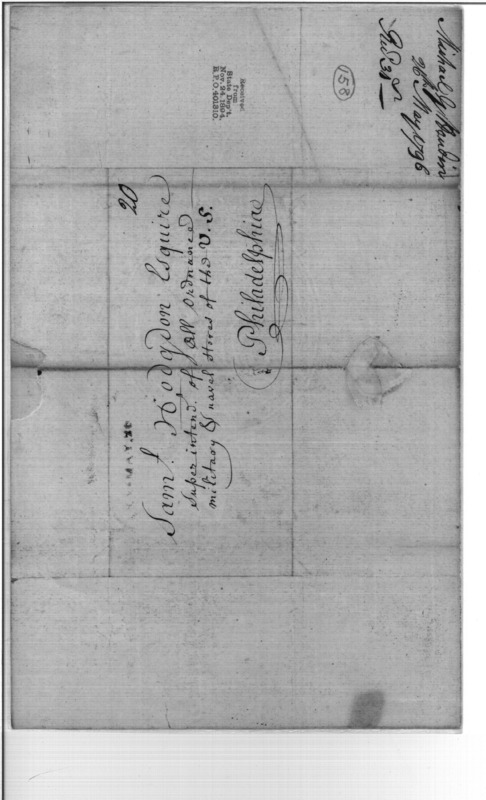 Michael G
26th May 1796
158
Received
from
State Dep't,
Nov. 24, 1894.
R.P.O. 401810.
20
MAY.26
Saml. Hodgdon Esquire
Super intend. of all Ordnance
military & naval stores of the U.S.
Philadelphia